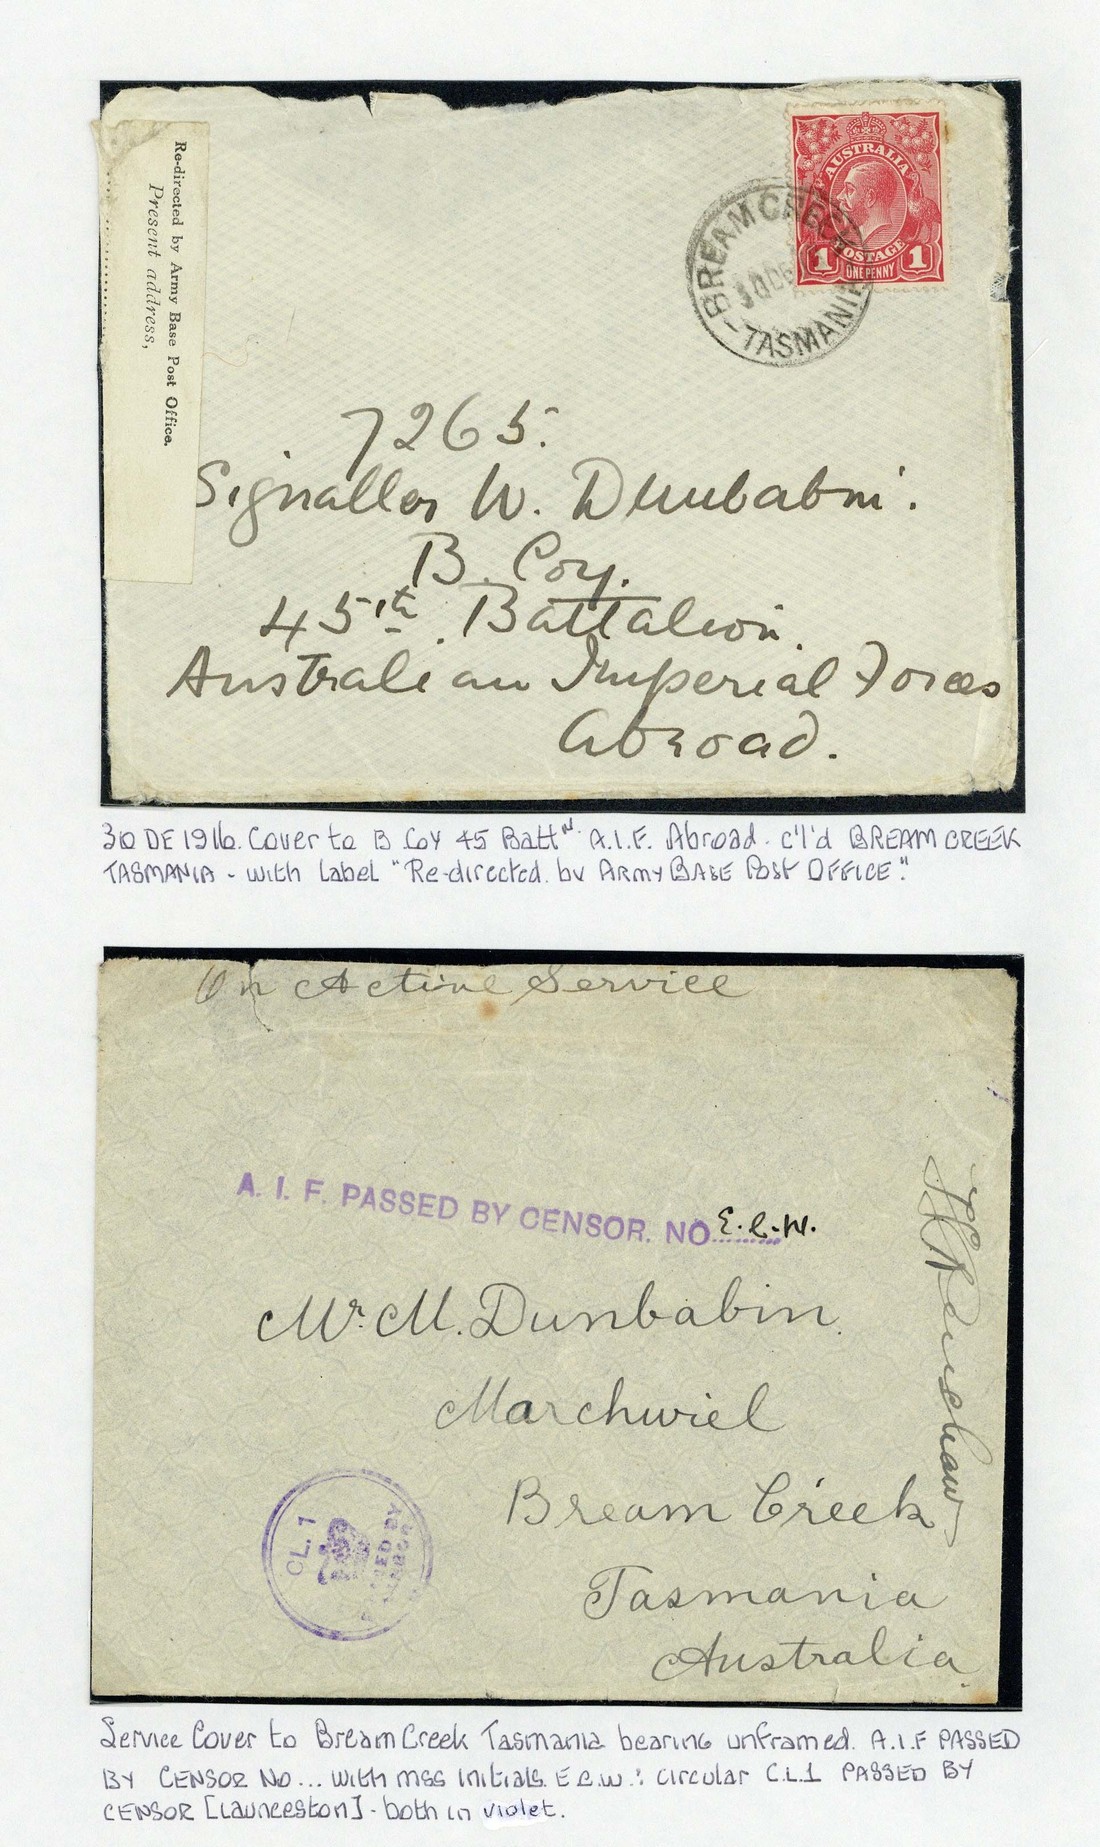 Re-directed by Army Base Post Office.
Present address,
AUSTRALIA
POSTAGE
1 ONE PENNY 1
BREAM CREEK
30 DE
-TASMANIA
7265.
Signaller W. Dunbabin.
B. Coy.
45th. Battalion.
Australian Imperial Forces
Abroad.
30 DE 1916. Cover to B Coy 45 Battn. A.I.F. Abroad. c'l'd BREAM CREEK
TASMANIA - with Label "Re-directed by ARMY BASE POST OFFICE".
On Active Service
A. I. F. PASSED BY CENSOR. NO E.C.W.
Mr. M. Dunbabin.
Marchwiel
Bream Creek
Tasmania
Australia
Renshaw
CL.1
PASSED BY
CENSOR
Service Cover to Bream Creek Tasmania bearing unframed. A.I.F PASSED
BY CENSOR NO... with mss initials. E C.W.: circular C.L.1 PASSED BY
CENSOR [Launceston] - both in violet.